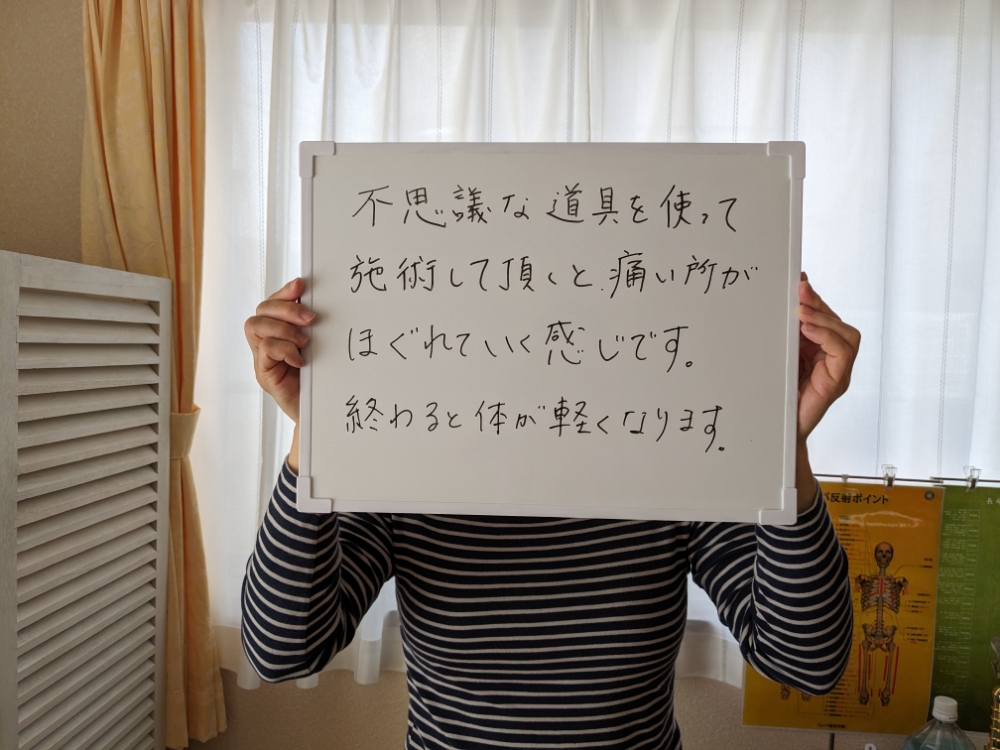 不思議な道具を使って
施術して頂くと、痛い所が
ほぐれていく感じです。
終わると体が軽くなります。
反射ポイント